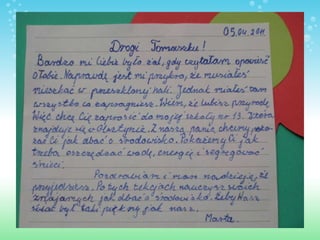 05.04.2011
Drogi Tomaszku!
Bardzo mi Ciebie było żal, gdy czytałam opowieść
o Tobie. Naprawdę jest mi przykro, że musiałeś
mieszkać w przeszklonej hali. Jednak miałeś tam
wszystko co zapragniesz. Wiem, że lubisz przyrodę
Więc chcę Cię zaprosić do mojej szkoły nr 13. Która
znajduje się w Olsztynie. Z naszą panią chcemy poka-
zać Ci jak dbać o środowisko. Pokażemy Ci jak
trzeba oszczędzać wodę, energię i segregować
śmieci.
Pozdrawiam i mam nadzieję, że
przyjedziesz. Po tych lekcjach nauczysz swoich
znajomych jak dbać o środowisko. Żeby Wasz
świat był taki piękny jak nasz.
Marta.